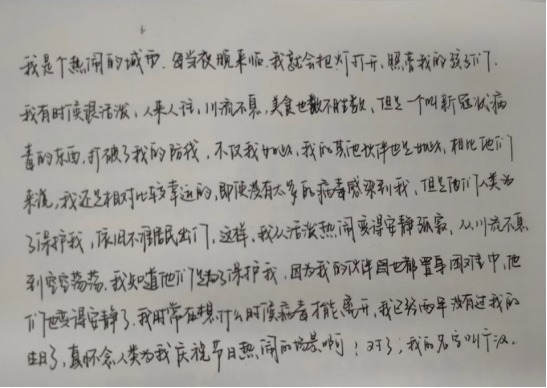 我是个热闹的城市．每当夜晚来临．我就会把灯打开，照亮我的孩子们．
我有时候很活泼，人来人往，川流不息，美食也数不胜数，但是一个叫新冠状病
毒的东西．打破了我的防线，不仅我如此，我的其他伙伴也是如此，相比他们
来说，我还是相对比较幸运的，即使没有太多的病毒感染到我，但是人类为
了保护我，依旧不准居民出门，这样，我从活泼热闹变得安静孤寂，从川流不息
到空空荡荡．我知道他们是为了保护我，因为我的伙伴因也都置身困难中，他
们也变得安静了．我时常在想．什么时候病毒才能离开，我已经两年没有过我的
生日了，真怀念人类为我庆祝节日热闹的场景啊！对了，我的名字叫广汉．